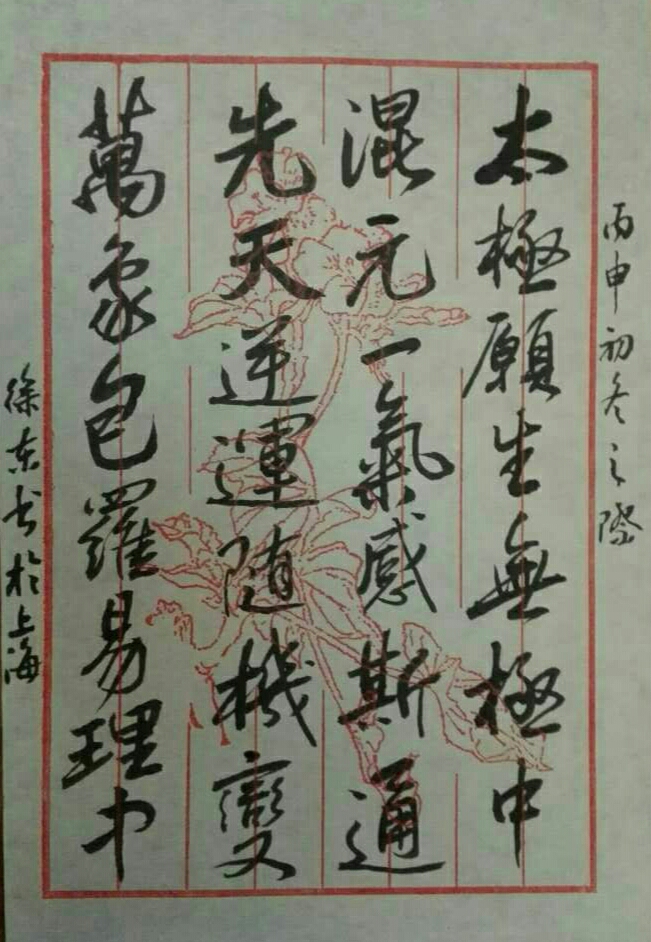 丙申初冬之際
太極願生無極中
混元一氣感斯通
先天逆運随機變
萬象包羅易理中
徐东书於上海